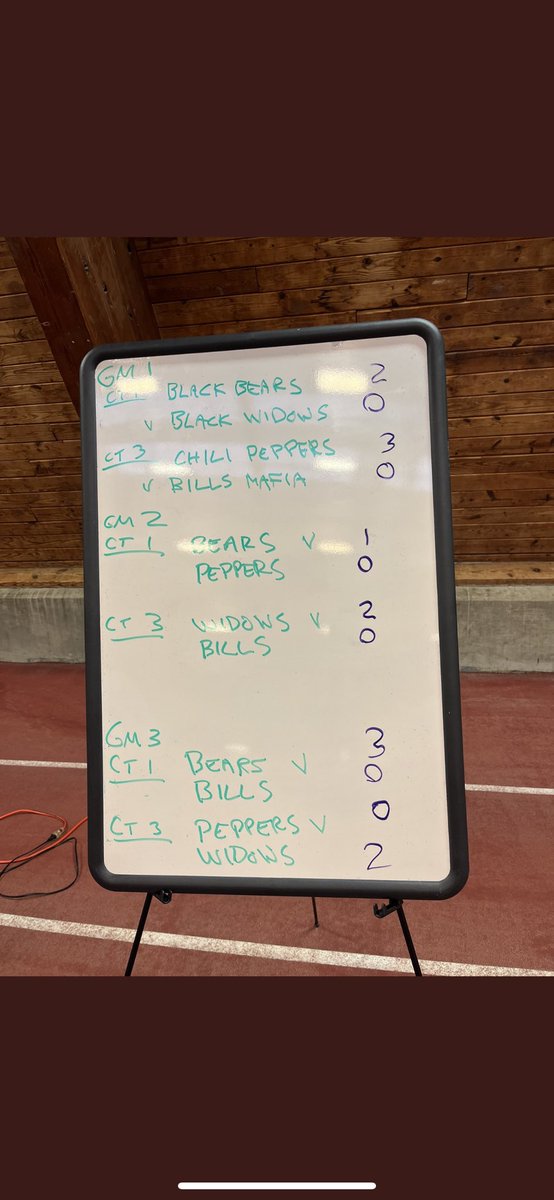 GM 1
CT 1 BLACK BEARS 2
v BLACK WIDOWS 0
CT 3 CHILI PEPPERS 3
v BILLS MAFIA 0
GM 2
CT 1 BEARS V 1
PEPPERS 0
CT 3 WIDOWS V 2
BILLS 0
GM 3
CT 1 BEARS V 3
BILLS 0
CT 3 PEPPERS V 0
WIDOWS 2